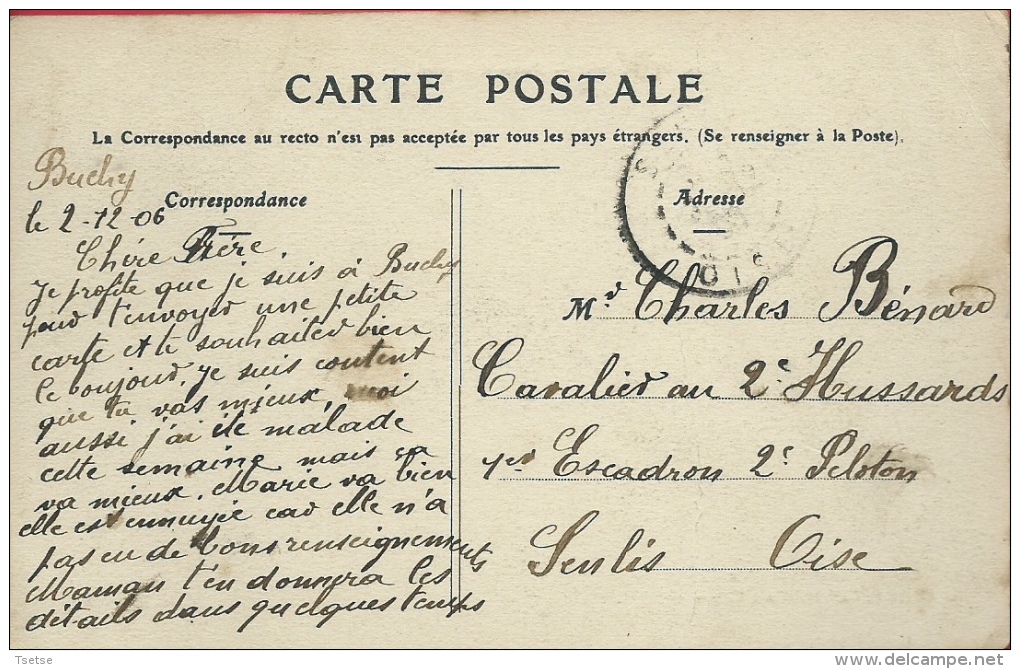 CARTE POSTALE
La Correspondance au recto n'est pas acceptée par tous les pays étrangers. (Se renseigner à la Poste).
Correspondance
Buchy
le 2-12-06
Chère Frère
Je profite que je suis à Buchy
pour t'envoyer une petite
carte et te souhaiter bien
le bonjour. Je suis content
que tu vas mieux, moi
aussi j'ai été malade
cette semaine mais ça
va mieux. Marie va bien
elle est ennuyée car elle n'a
pas eu de bons renseignements
Maman t'en donnera les
détails dans quelques temps
Adresse
OISE
Mr Charles Bénard
Cavalier au 2e Hussards
1er Escadron 2e Peloton
Senlis Oise
Tsetse
delcampe.net